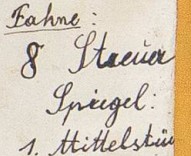 Fahne:
8 Streuer
Spiegel:
1 Mittelstü